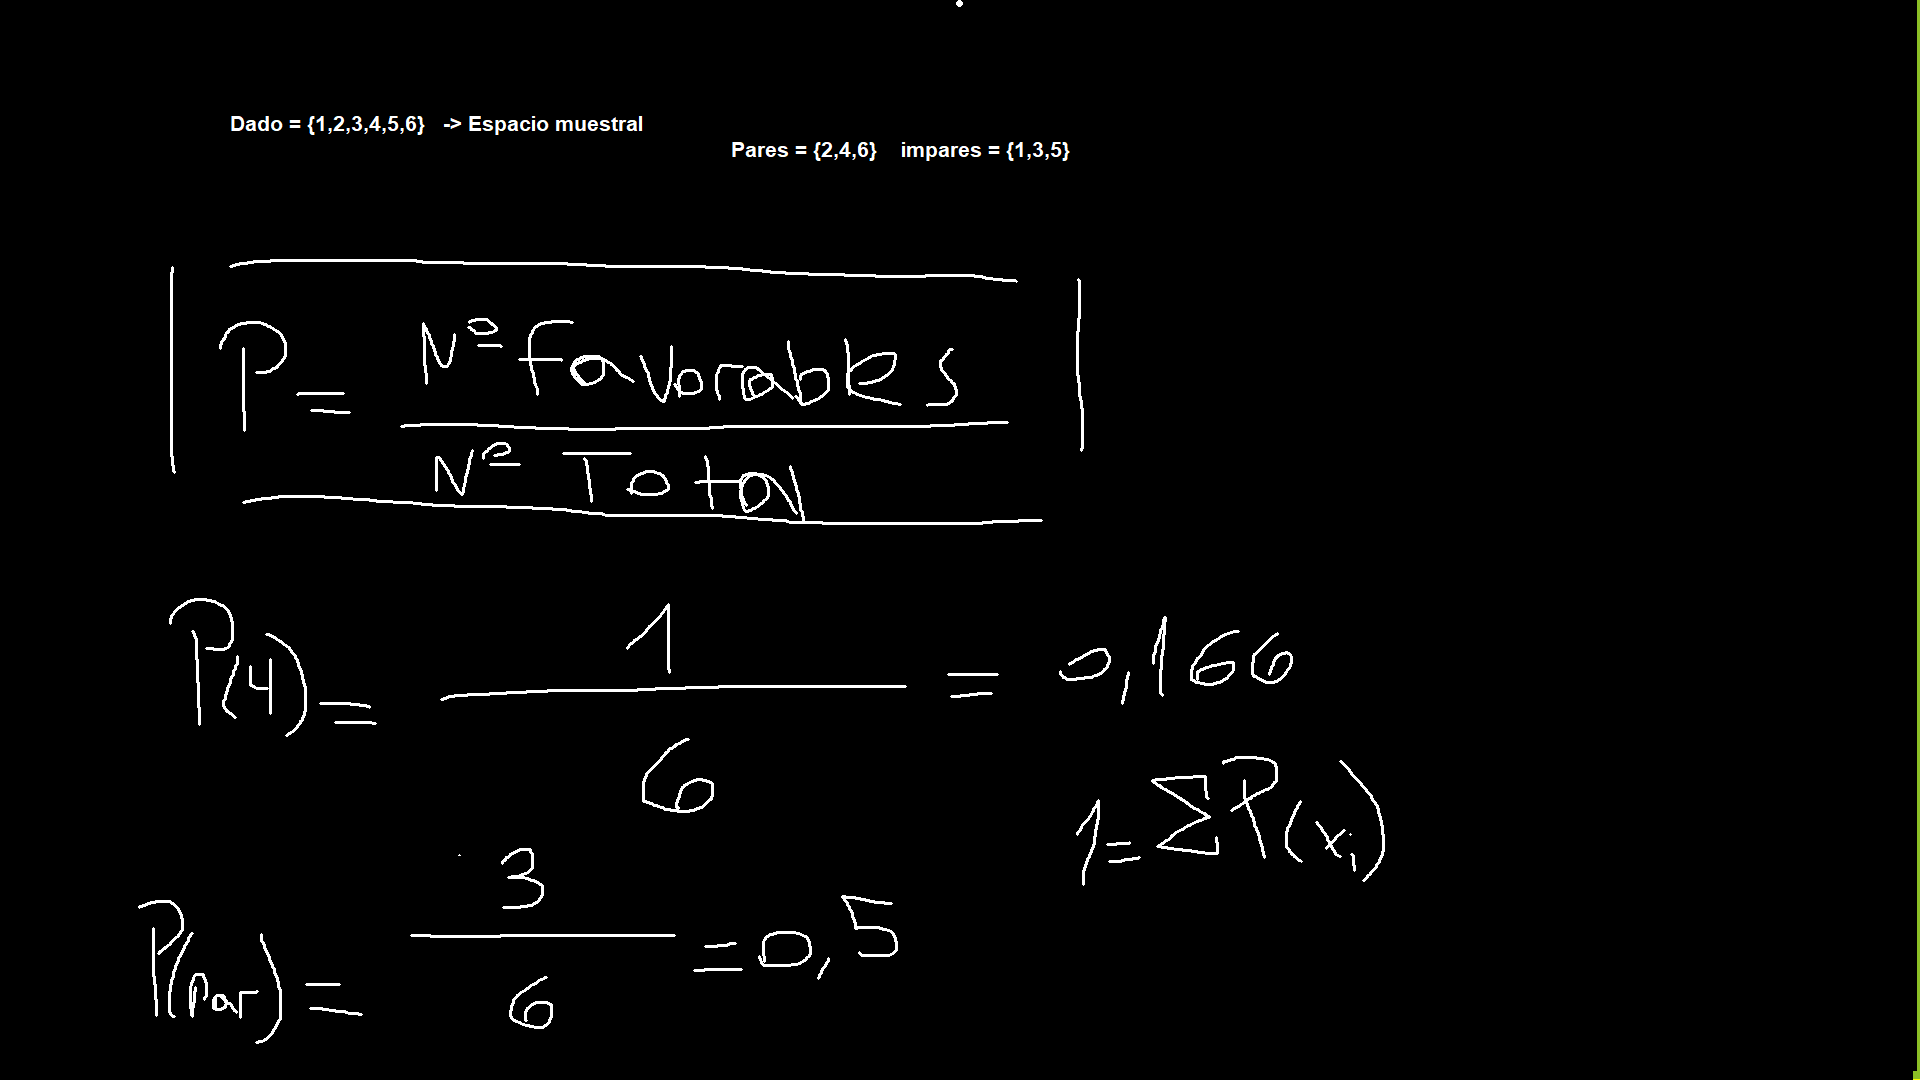 Dado = {1,2,3,4,5,6}   -> Espacio muestral
Pares = {2,4,6}    impares = {1,3,5}
P = Nº favorables / Nº Total
P(4) = 1 / 6 = 0,166
1 = ΣP(xi)
P(par) = 3 / 6 = 0,5